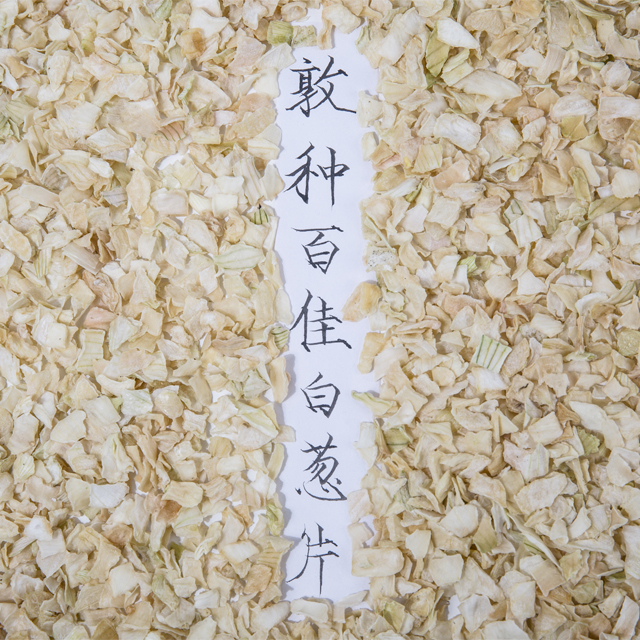 敦种百佳白葱片